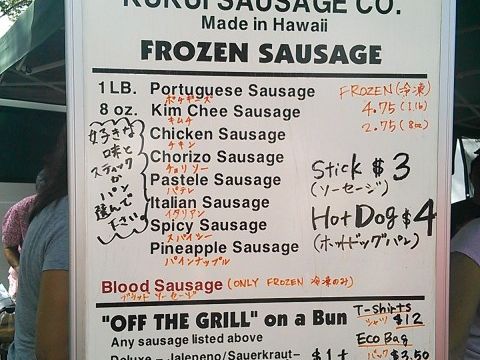 KUKUI SAUSAGE CO.
Made in Hawaii
FROZEN SAUSAGE
1 LB. Portuguese Sausage FROZEN (冷凍)
ポチギーズ
8 oz. Kim Chee Sausage 4.75 (1 lb)
キムチ 2.75 (8oz)
Chicken Sausage
チキン
Chorizo Sausage
チョリソー
Pastele Sausage
パテレ
Italian Sausage
イタリアン
Spicy Sausage
スパイシー
Pineapple Sausage
パインナップル
好きな
味と
スティックか
パン
選んで
下さい
Stick $3
(ソーセージ)
Hot Dog $4
(ホットドッグパン)
Blood Sausage (ONLY FROZEN 冷凍のみ)
ブラッド ソーセージ
"OFF THE GRILL" on a Bun
Any sausage listed above
Deluxe – Jalepeno/Sauerkraut- $1+
T-shirts
シャツ $12
Eco Bag
バック $3.50